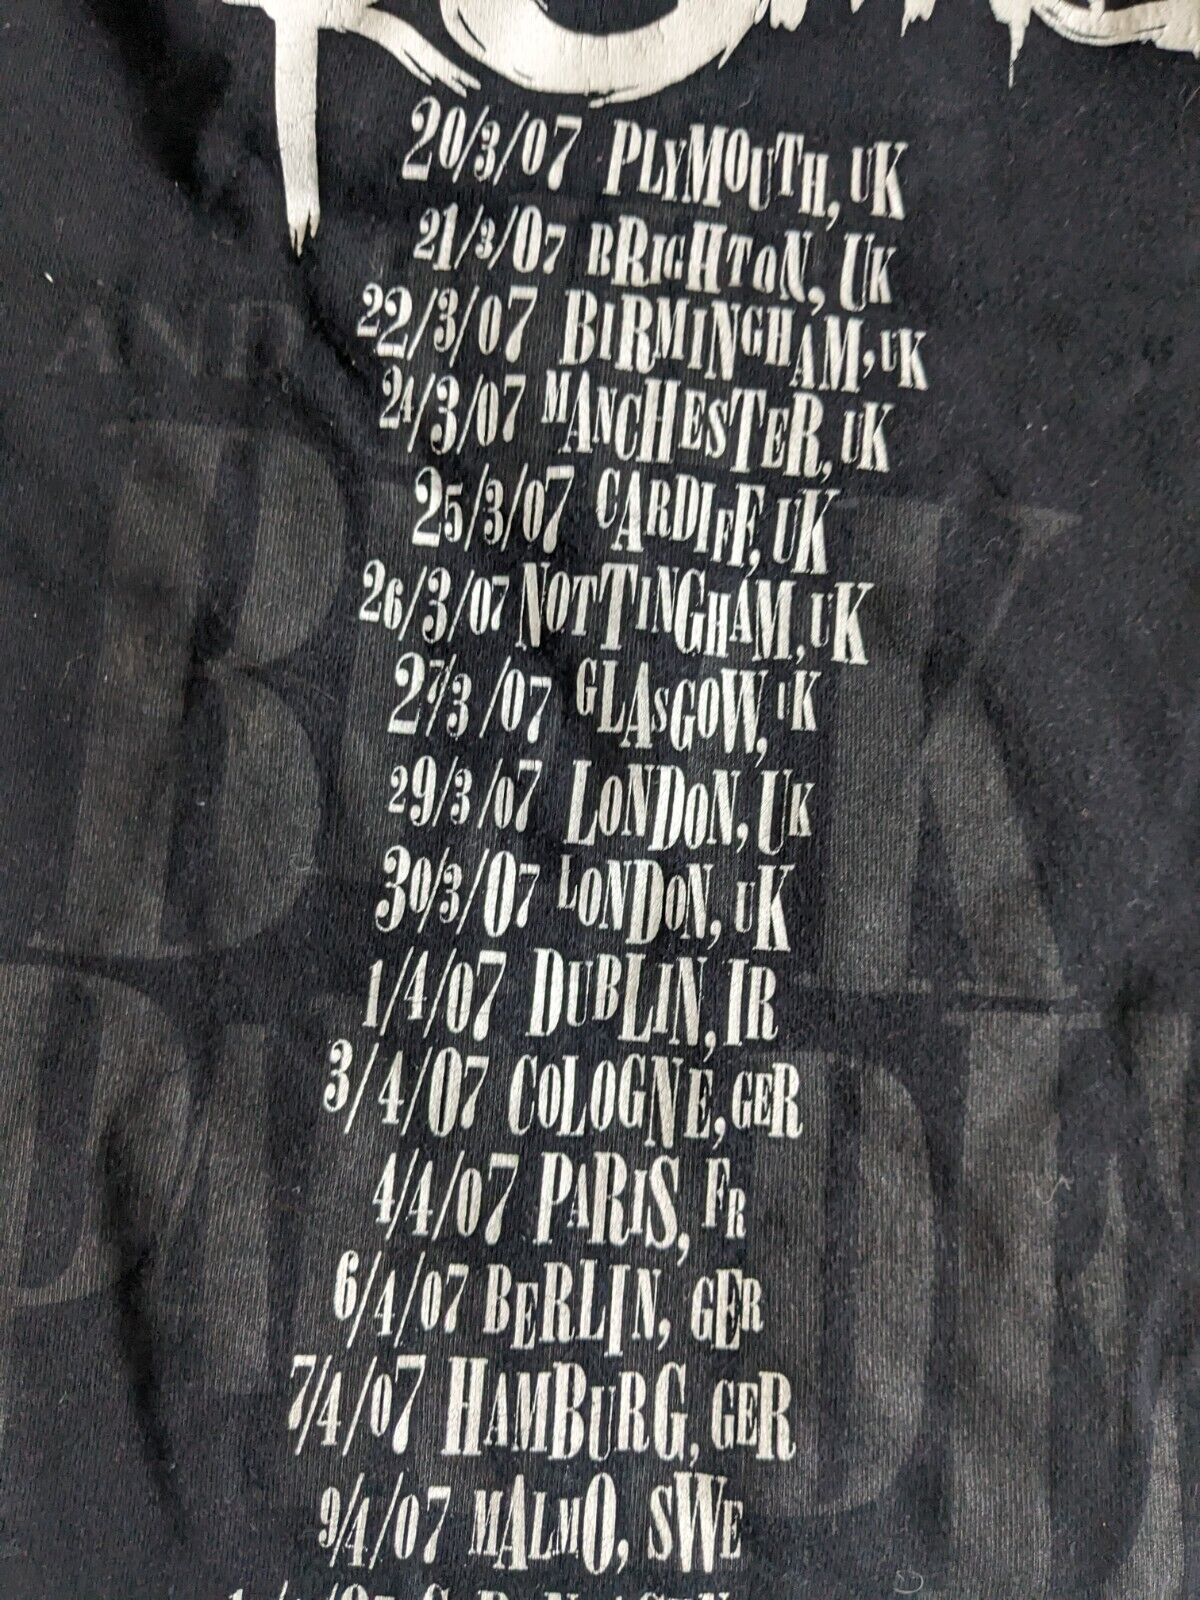 20/3/07 PLYMOUTH, UK
21/3/07 BRIGHTON, UK
22/3/07 BIRMINGHAM, UK
24/3/07 MANCHESTER, UK
25/3/07 CARDIFF, UK
26/3/07 NOTTINGHAM, UK
27/3/07 GLASGOW, UK
29/3/07 LONDON, UK
30/3/07 LONDON, UK
1/4/07 DUBLIN, IR
3/4/07 COLOGNE, GER
4/4/07 PARIS, FR
6/4/07 BERLIN, GER
7/4/07 HAMBURG, GER
9/4/07 MALMO, SWE
AND